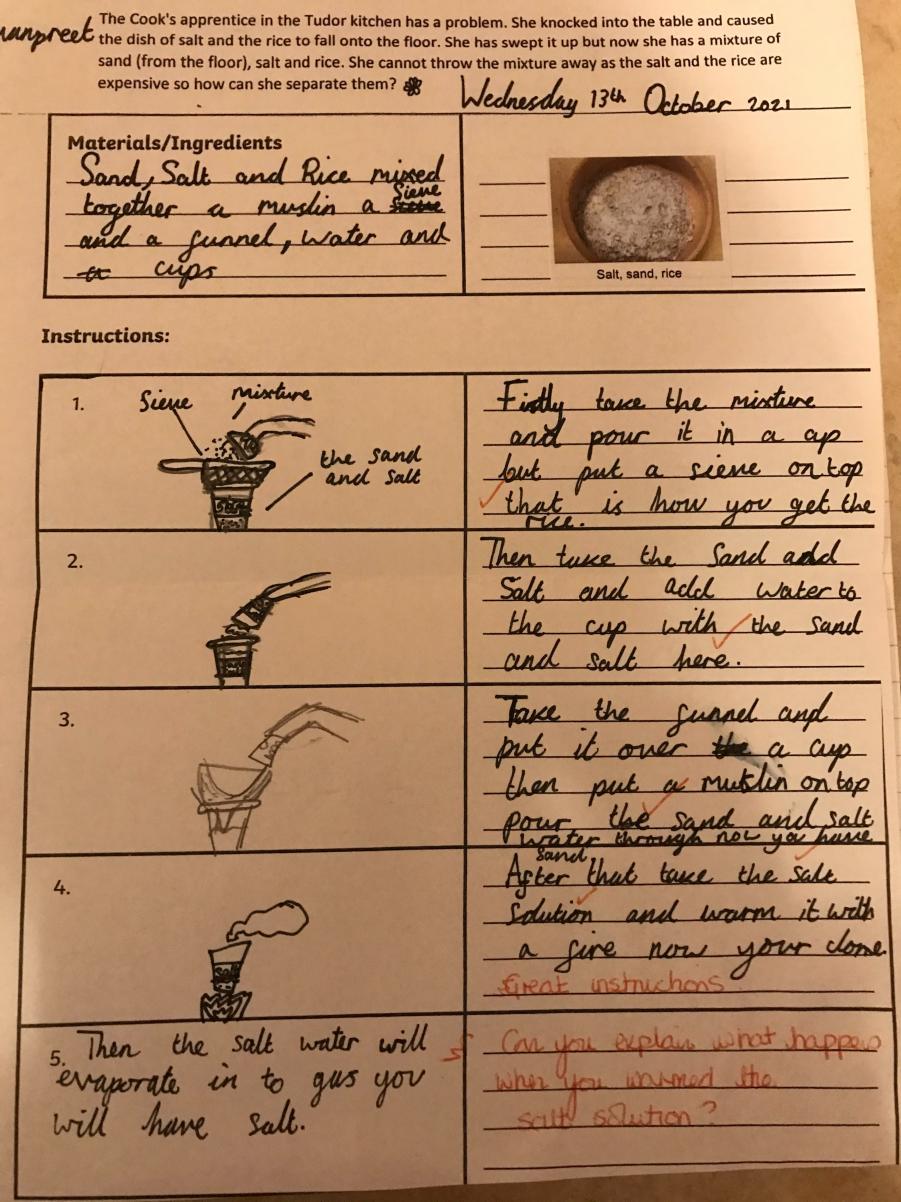 The Cook's apprentice in the Tudor kitchen has a problem. She knocked into the table and caused
the dish of salt and the rice to fall onto the floor. She has swept it up but now she has a mixture of
sand (from the floor), salt and rice. She cannot throw the mixture away as the salt and the rice are
expensive so how can she separate them?
Wednesday 13th October 2021
Materials/Ingredients
Sand, Salt and Rice mixed
together a muslin a Sieve
and a funnel, Water and
cups
Salt, sand, rice
Instructions:
1.
Sieve mixture
the sand
and salt
Firstly take the mixture
and pour it in a cup
but put a sieve on top
that is how you get the
rice.
2.
Then take the Sand add
Salt and add water to
the cup with the sand
and salt here.
3.
Take the funnel and
put it over a cup
then put a muslin on top
pour the sand and salt
water through now you have
sand.
4.
After that take the salt
Solution and warm it with
a fire now your done
Great instructions
5. Then the salt water will
evaporate in to gas you
will have salt.
Can you explain what happens
when you warmed the
salt solution?